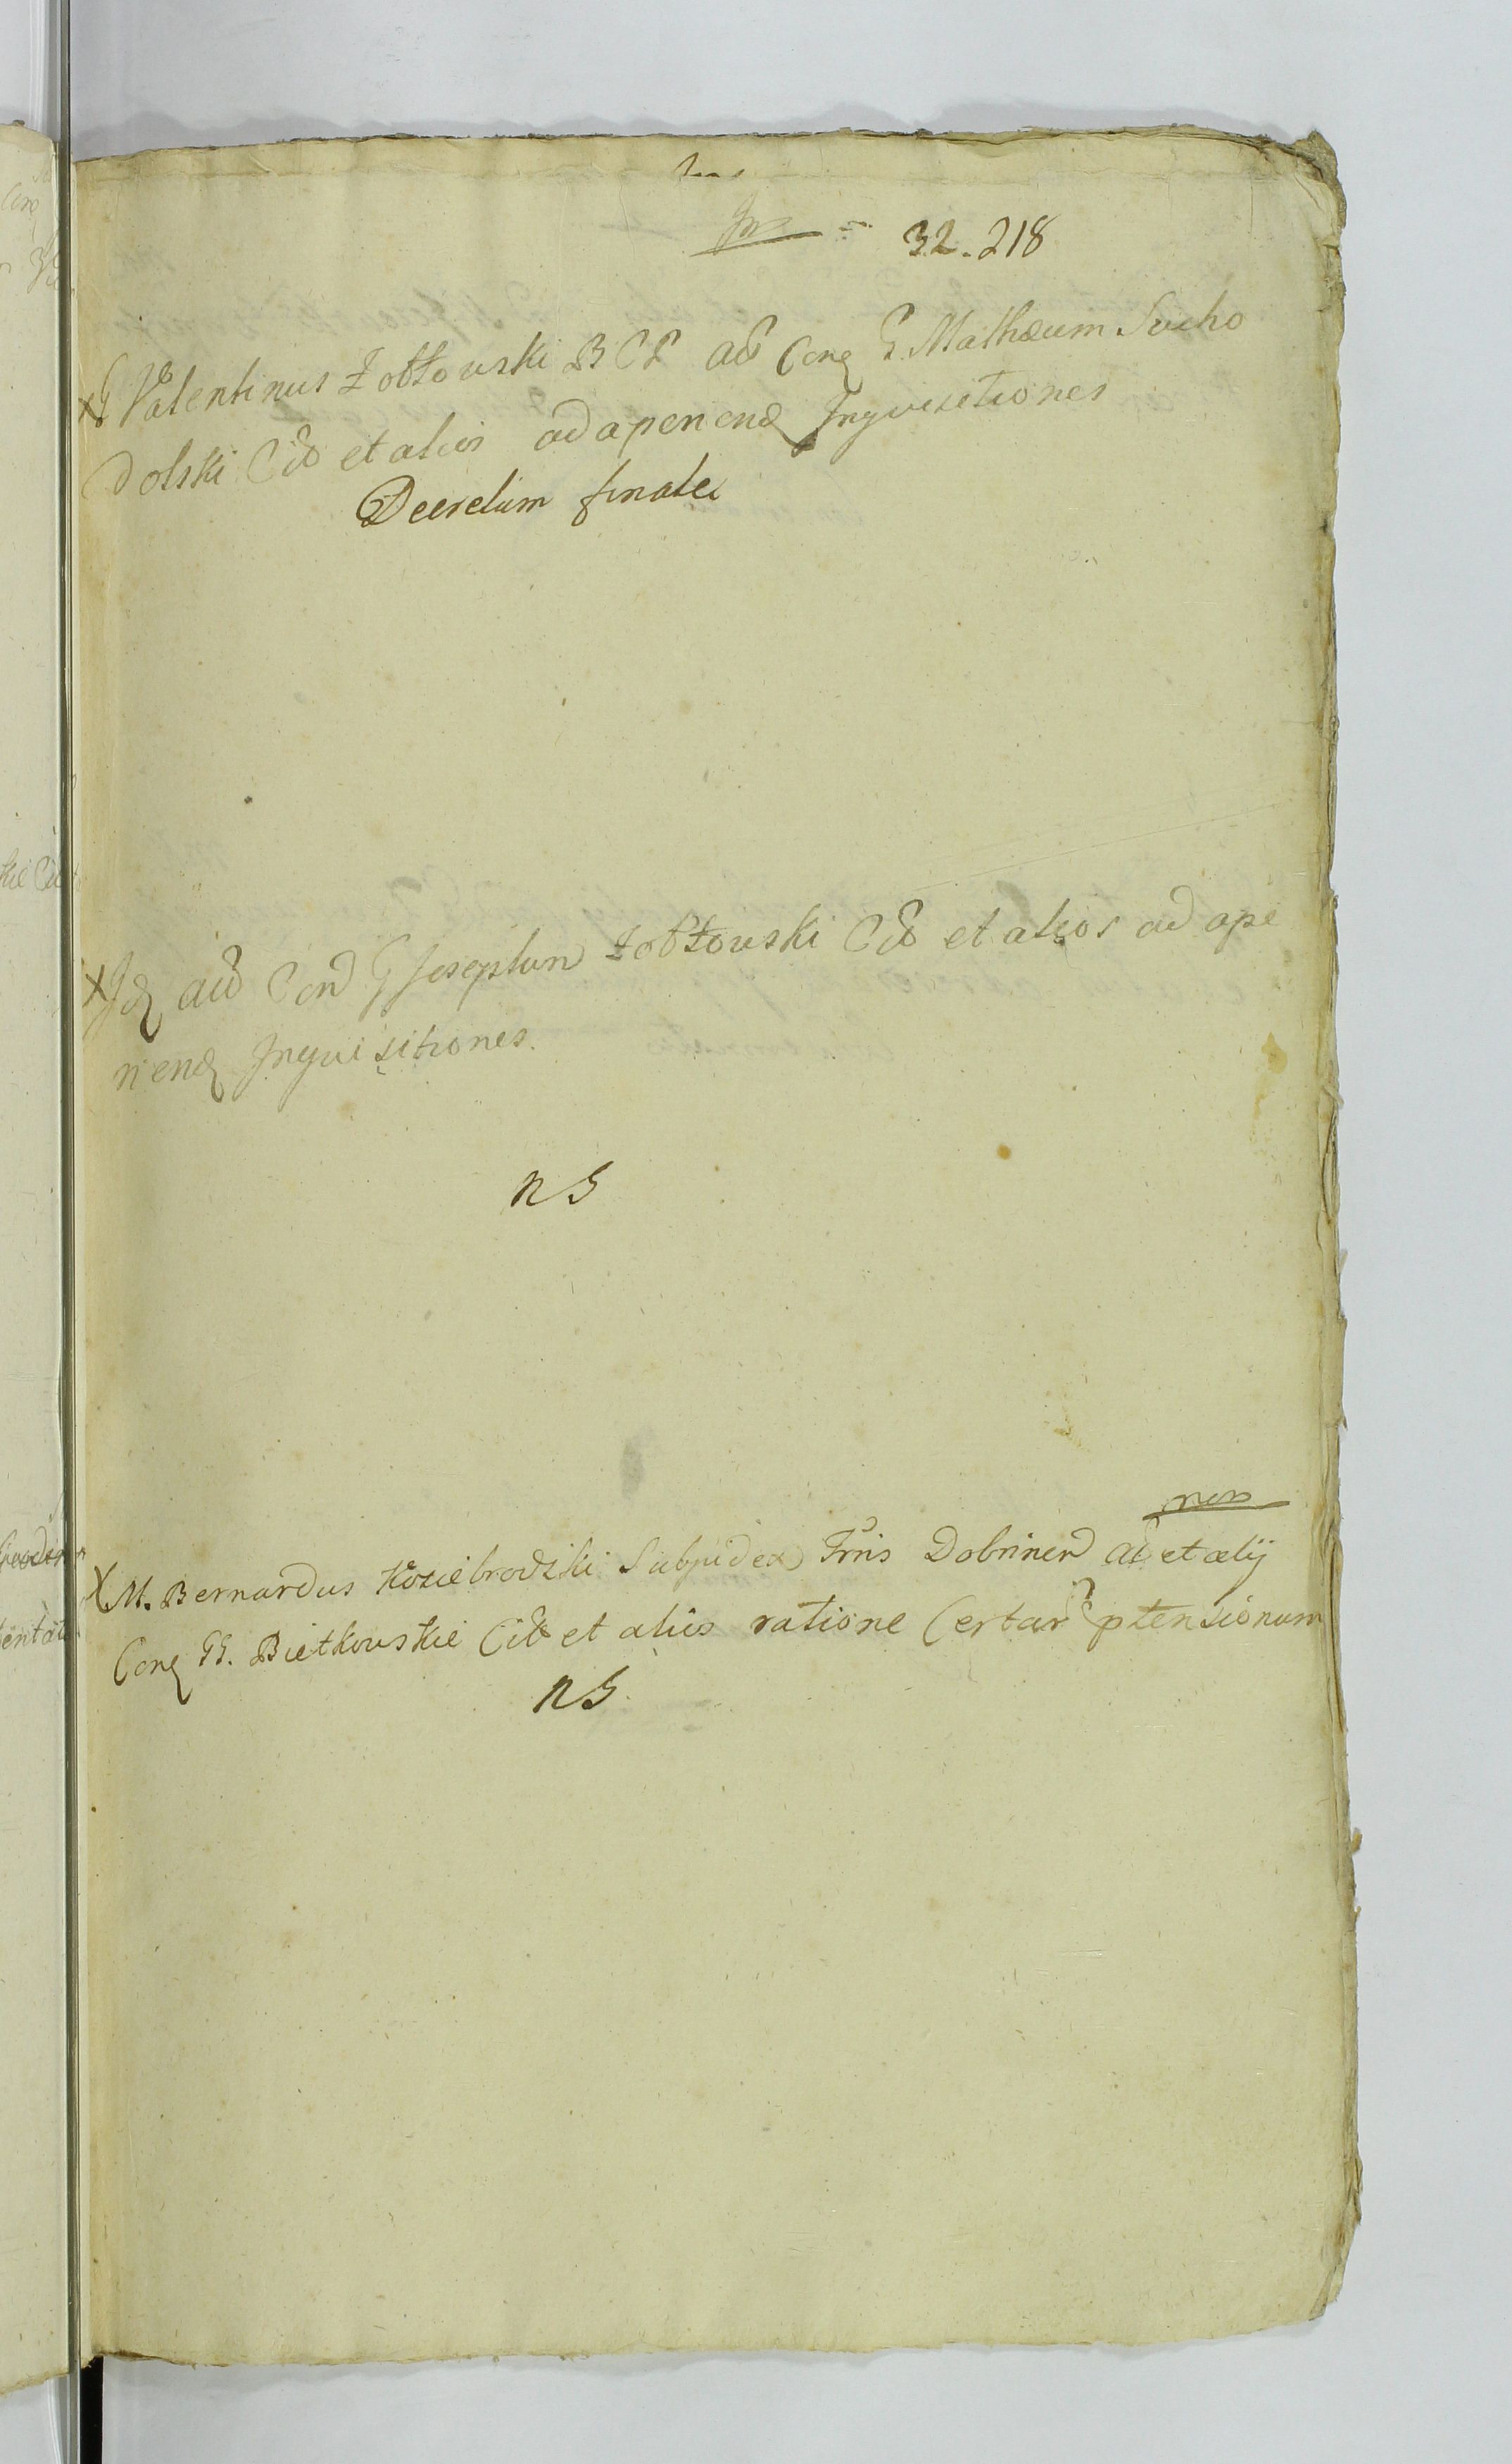 32. 218
x G Valentinus Żołtowski B C P Act Conq G. Mathæum Sucho
dolski Citt et alios ad aperiend Inquisitiones
Decretum finale
x Id act Con G Josephum Żołtowski Citt et alios ad ape
riend Inquisitiones.
NS
non
x M. Bernardus Koziebrodzki Subjudex Trris Dobrinen Act et alij
Conq GG. Bietkowskie Citt et alios ratione Certar ptensionum
NS